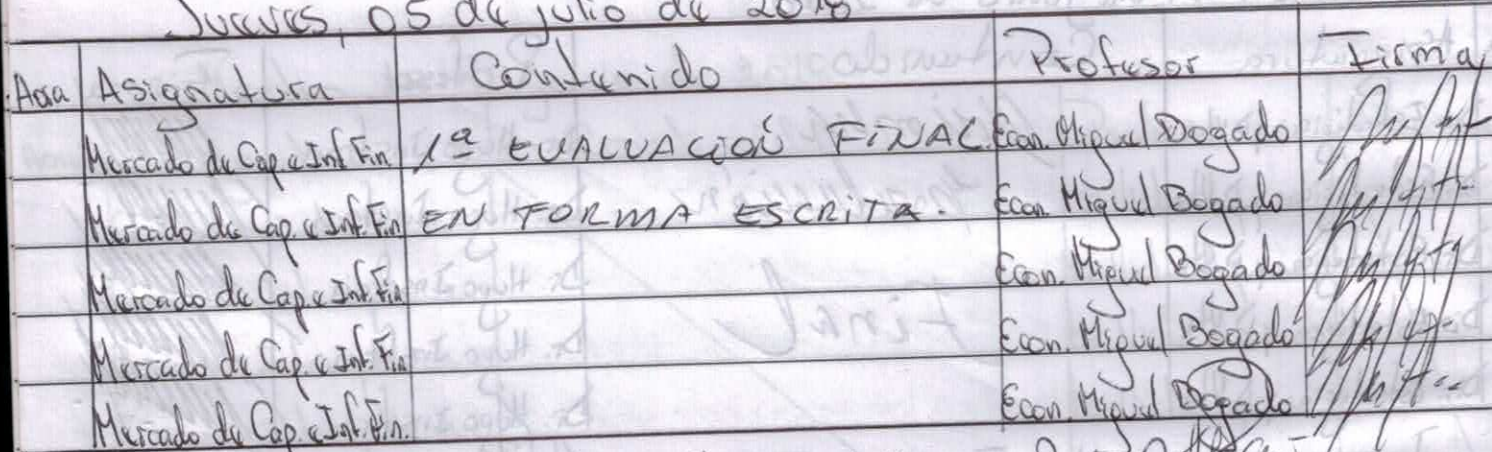 Jueves, 05 de julio de 2018
Asignatura Contenido Profesor Firma
Mercado de Cap. e Int Fin 1ª EVALUACIÓN FINAL Econ. Miguel Bogado
Mercado de Cap. e Int. Fin EN FORMA ESCRITA. Econ. Miguel Bogado
Mercado de Cap. e Int. Fin Econ. Miguel Bogado
Mercado de Cap. e Int. Fin Econ. Miguel Bogado
Mercado de Cap. e Int. Fin. Econ. Miguel Bogado